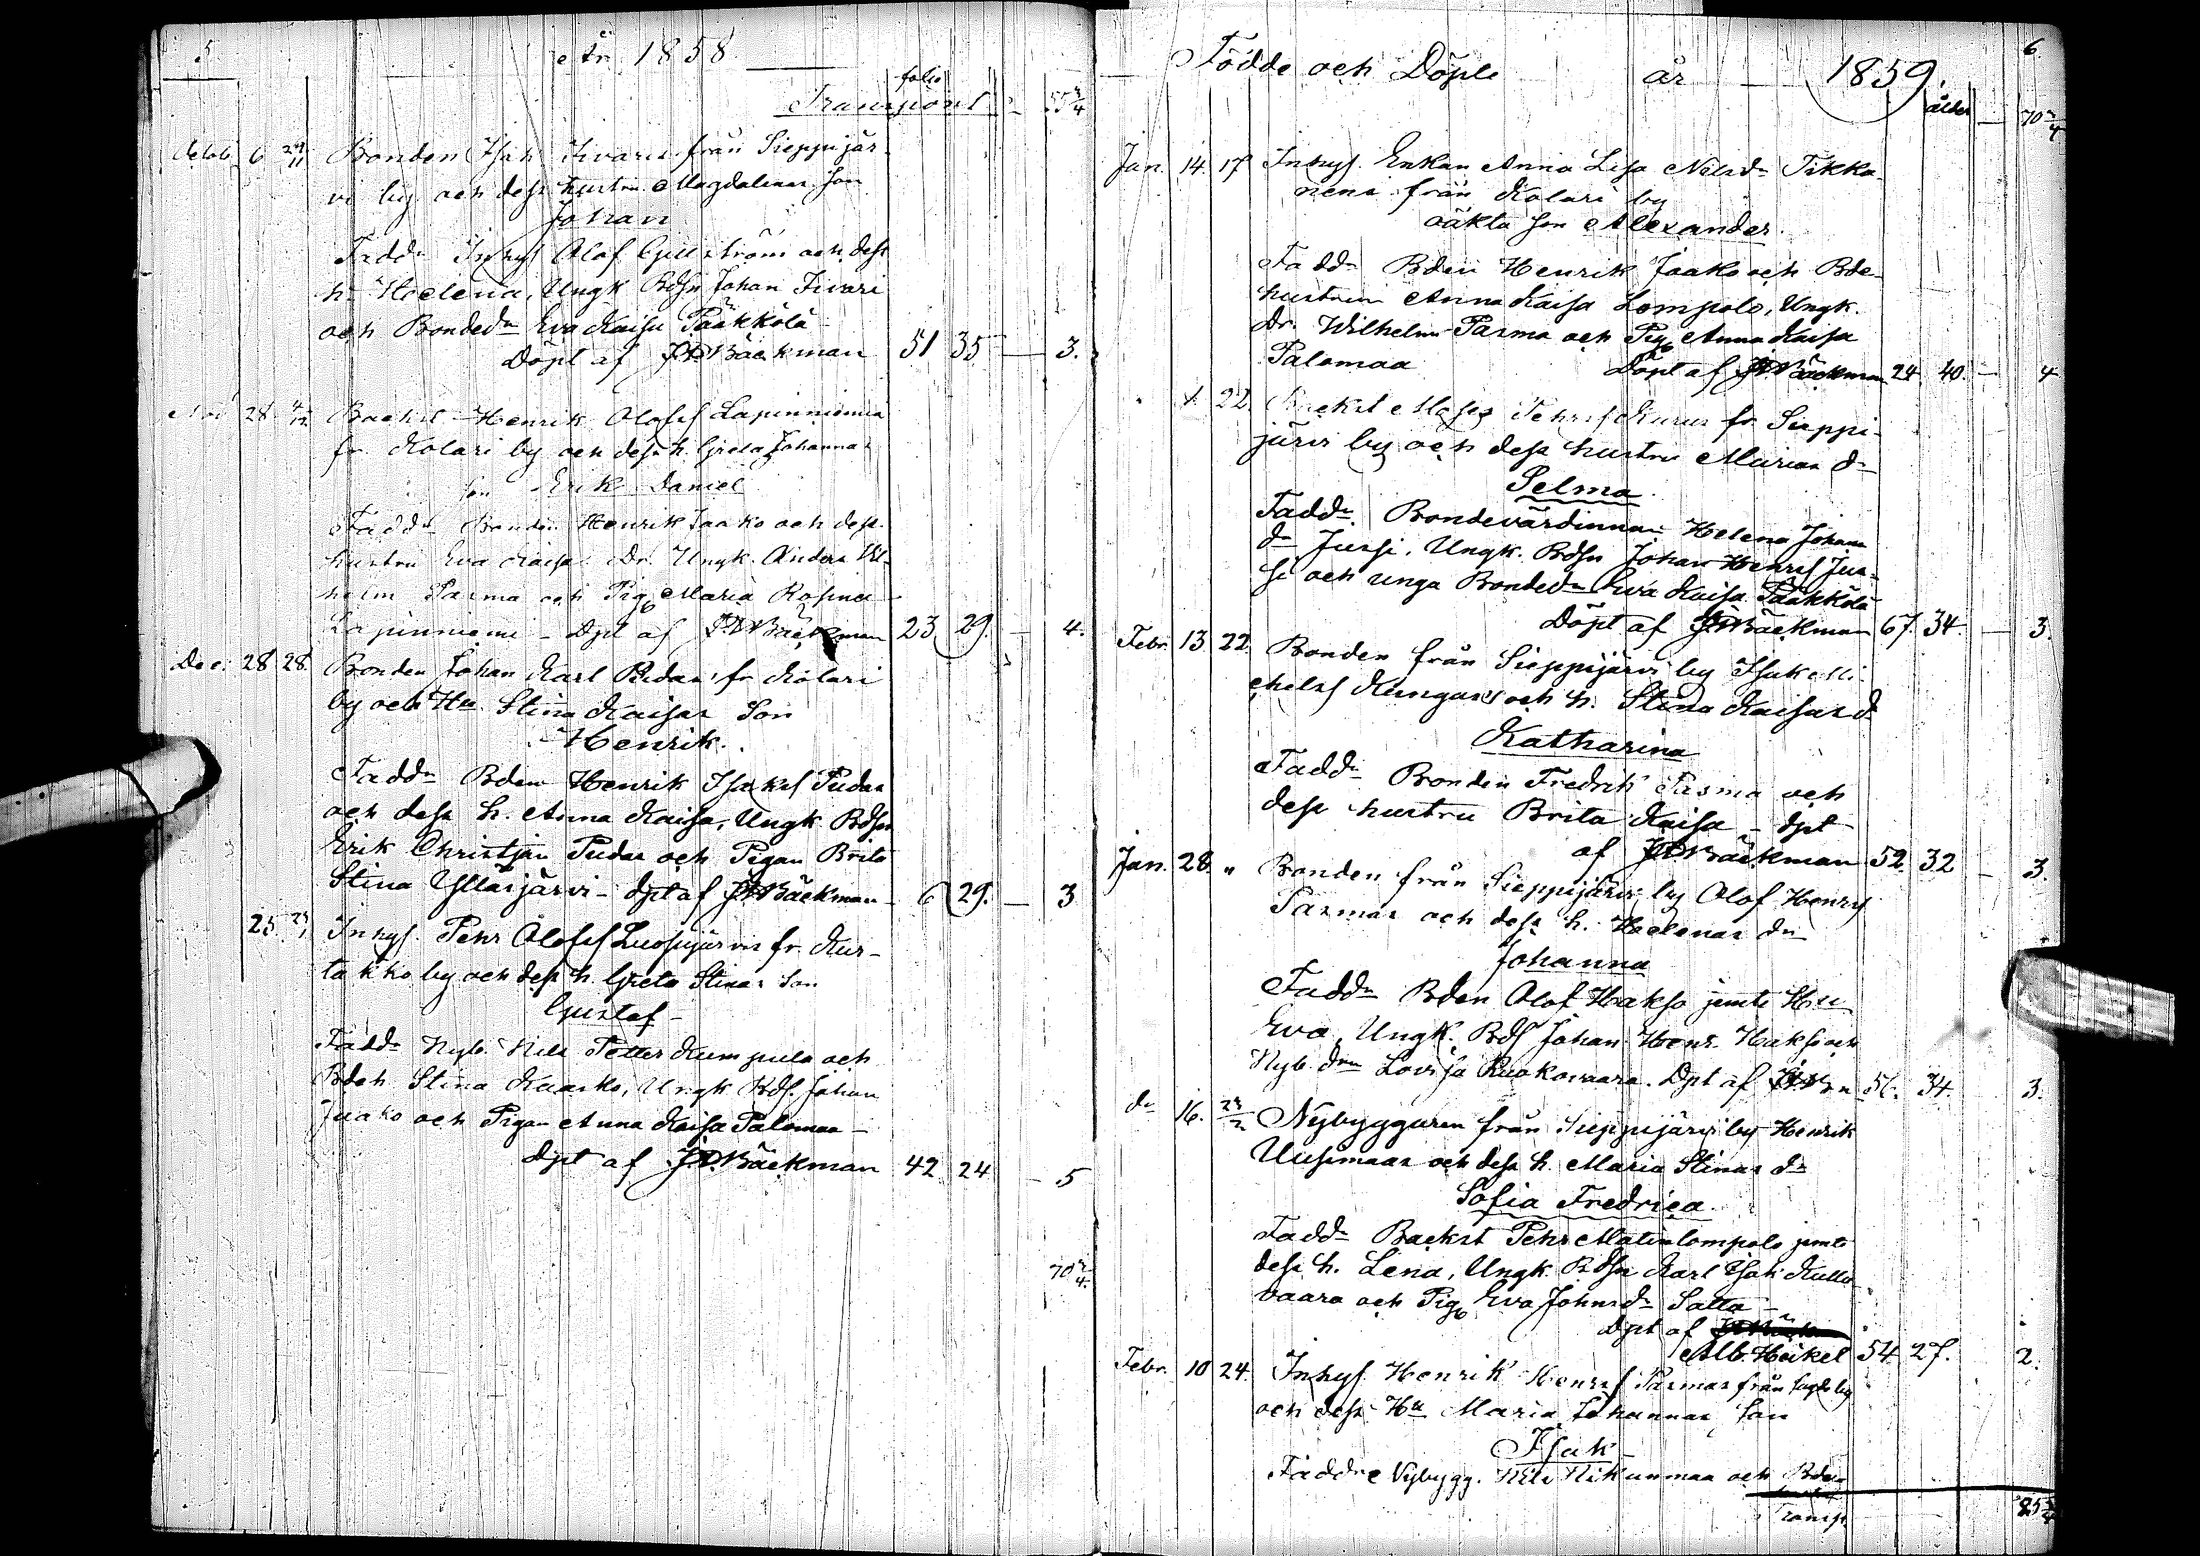 5
År 1858
folio
Transport 55 3/4
Octob. 6 29/11 Bonden Isak Iivaris från Sieppijär-
vi by och dess hustru Magdalenas son
Johan
Faddr Inhys Olof Gyllström och dess
h. Helena, Ungk Bdsn Johan Iivari
och Bondedr Eva Kaisa Pääkkölä
Döpt af J.W. Bäckman 51 35 — 3.
Nov. 28 4/12 Backst Henrik Olofss Lapinniemis
fr. Kolari by och dess h. Greta Johannas
son Erik Daniel
Faddr Bonden Henrik Jaako och dess
hustru Eva Kaisa Dr. Ungk. Anders Wil-
helm Parma och Pig. Maria Rosina
Lapinniemi – Dpt af J.W. Bäckman 23 29. — 4.
Dec. 28 28. Bonden Johan Karl Pudas, fr Kolari
by och Hu. Stina Kaisas Son
Henrik.
Faddr Bden Henrik Isakss Pudas
och dess h. Anna Kaisa, Ungk Bdsn
Erik Christian Pudas och Pigan Brita
Stina Ylläsjärvi – dpt af J.W. Bäckman – 6 29. — 3
25 Inhys. Pehr Olofss Luosujärvis fr. Kur-
takko by och dess h. Greta Stinas son
Gustaf –
Faddr Nyb. Nils Petter Kumpula och
Bdeh. Stina Kaarko, Ungk Bds. Johan
Jaako och Pigan Anna Kaisa Palomaa –
Dpt af J.W. Bäckman 42. 24 — 5
70 3/4.
6.
Födde och Döpte år 1859.
ålder 70 3/4
Jan. 14. 17. Inhys. Enkan Anna Lisa Nilsdr Tikka-
nens från Kolari by
oäkta son Alexander.
Faddr Bden Henrik Jaako och Bde-
hustrun Anna Kaisa Lompolo, Ungk.
Dr. Wilhelm Parma och Pig. Anna Kaisa
Palomaa Döpt af J.W. Bäckman 24. 40. — 4
22. Backst Moses Pehrss Kurus fr. Sieppi-
järvi by och dess hustru Marias dr
Selma.
Faddr. Bondevärdinnan Helena Johans
dr Jussi, Ungk. Bdsn Johan Henrss Jus-
si och unga Bondedr Eva Kaisa Pääkkölä
Döpt af J.W. Bäckman 67. 34. — 3.
Febr. 13. 22. Bonden från Sieppijärvi by Isak Mi-
chelss Kungas och h. Stina Kaisas dr
Katharina
Faddr Bonden Fredrik Parma och
dess hustru Brita Kaisa – dpt
af J.W. Bäckman 52. 32 — 3.
Jan. 28. " Bonden från Sieppijärvi by Olof Henrss
Parmas och dess h. Helenas dr
Johanna
Faddr Bden Olof Hakso jemte Hu
Eva, Ungk. Bds Johan Henr. Hakso och
Nyb. drn Lovisa Ruokovaara. Dpt af J.W. Bn 56. 34. 3.
dr 16. 24/2 Nybyggaren från Sieppijärvi by Henrik
Uusimaas och dess h. Maria Stinas dr
Sofia Fredrica.
Faddr Backst Pehr Matinlompolo jemte
dess h. Lena, Ungk. Bdsn Karl Isak Kulla-
vaara och Pig. Eva Johnsdr Salta –
Dpt af
Alb. Heikel 54. 27. 2.
Febr. 10 24. Inhys Henrik Henrss Parmas från sagde by
och dess Hu Maria Johannas son
Isak –
Faddre Nybygg. Nils Nikunmaa och Bden
Transp. 85 3/4